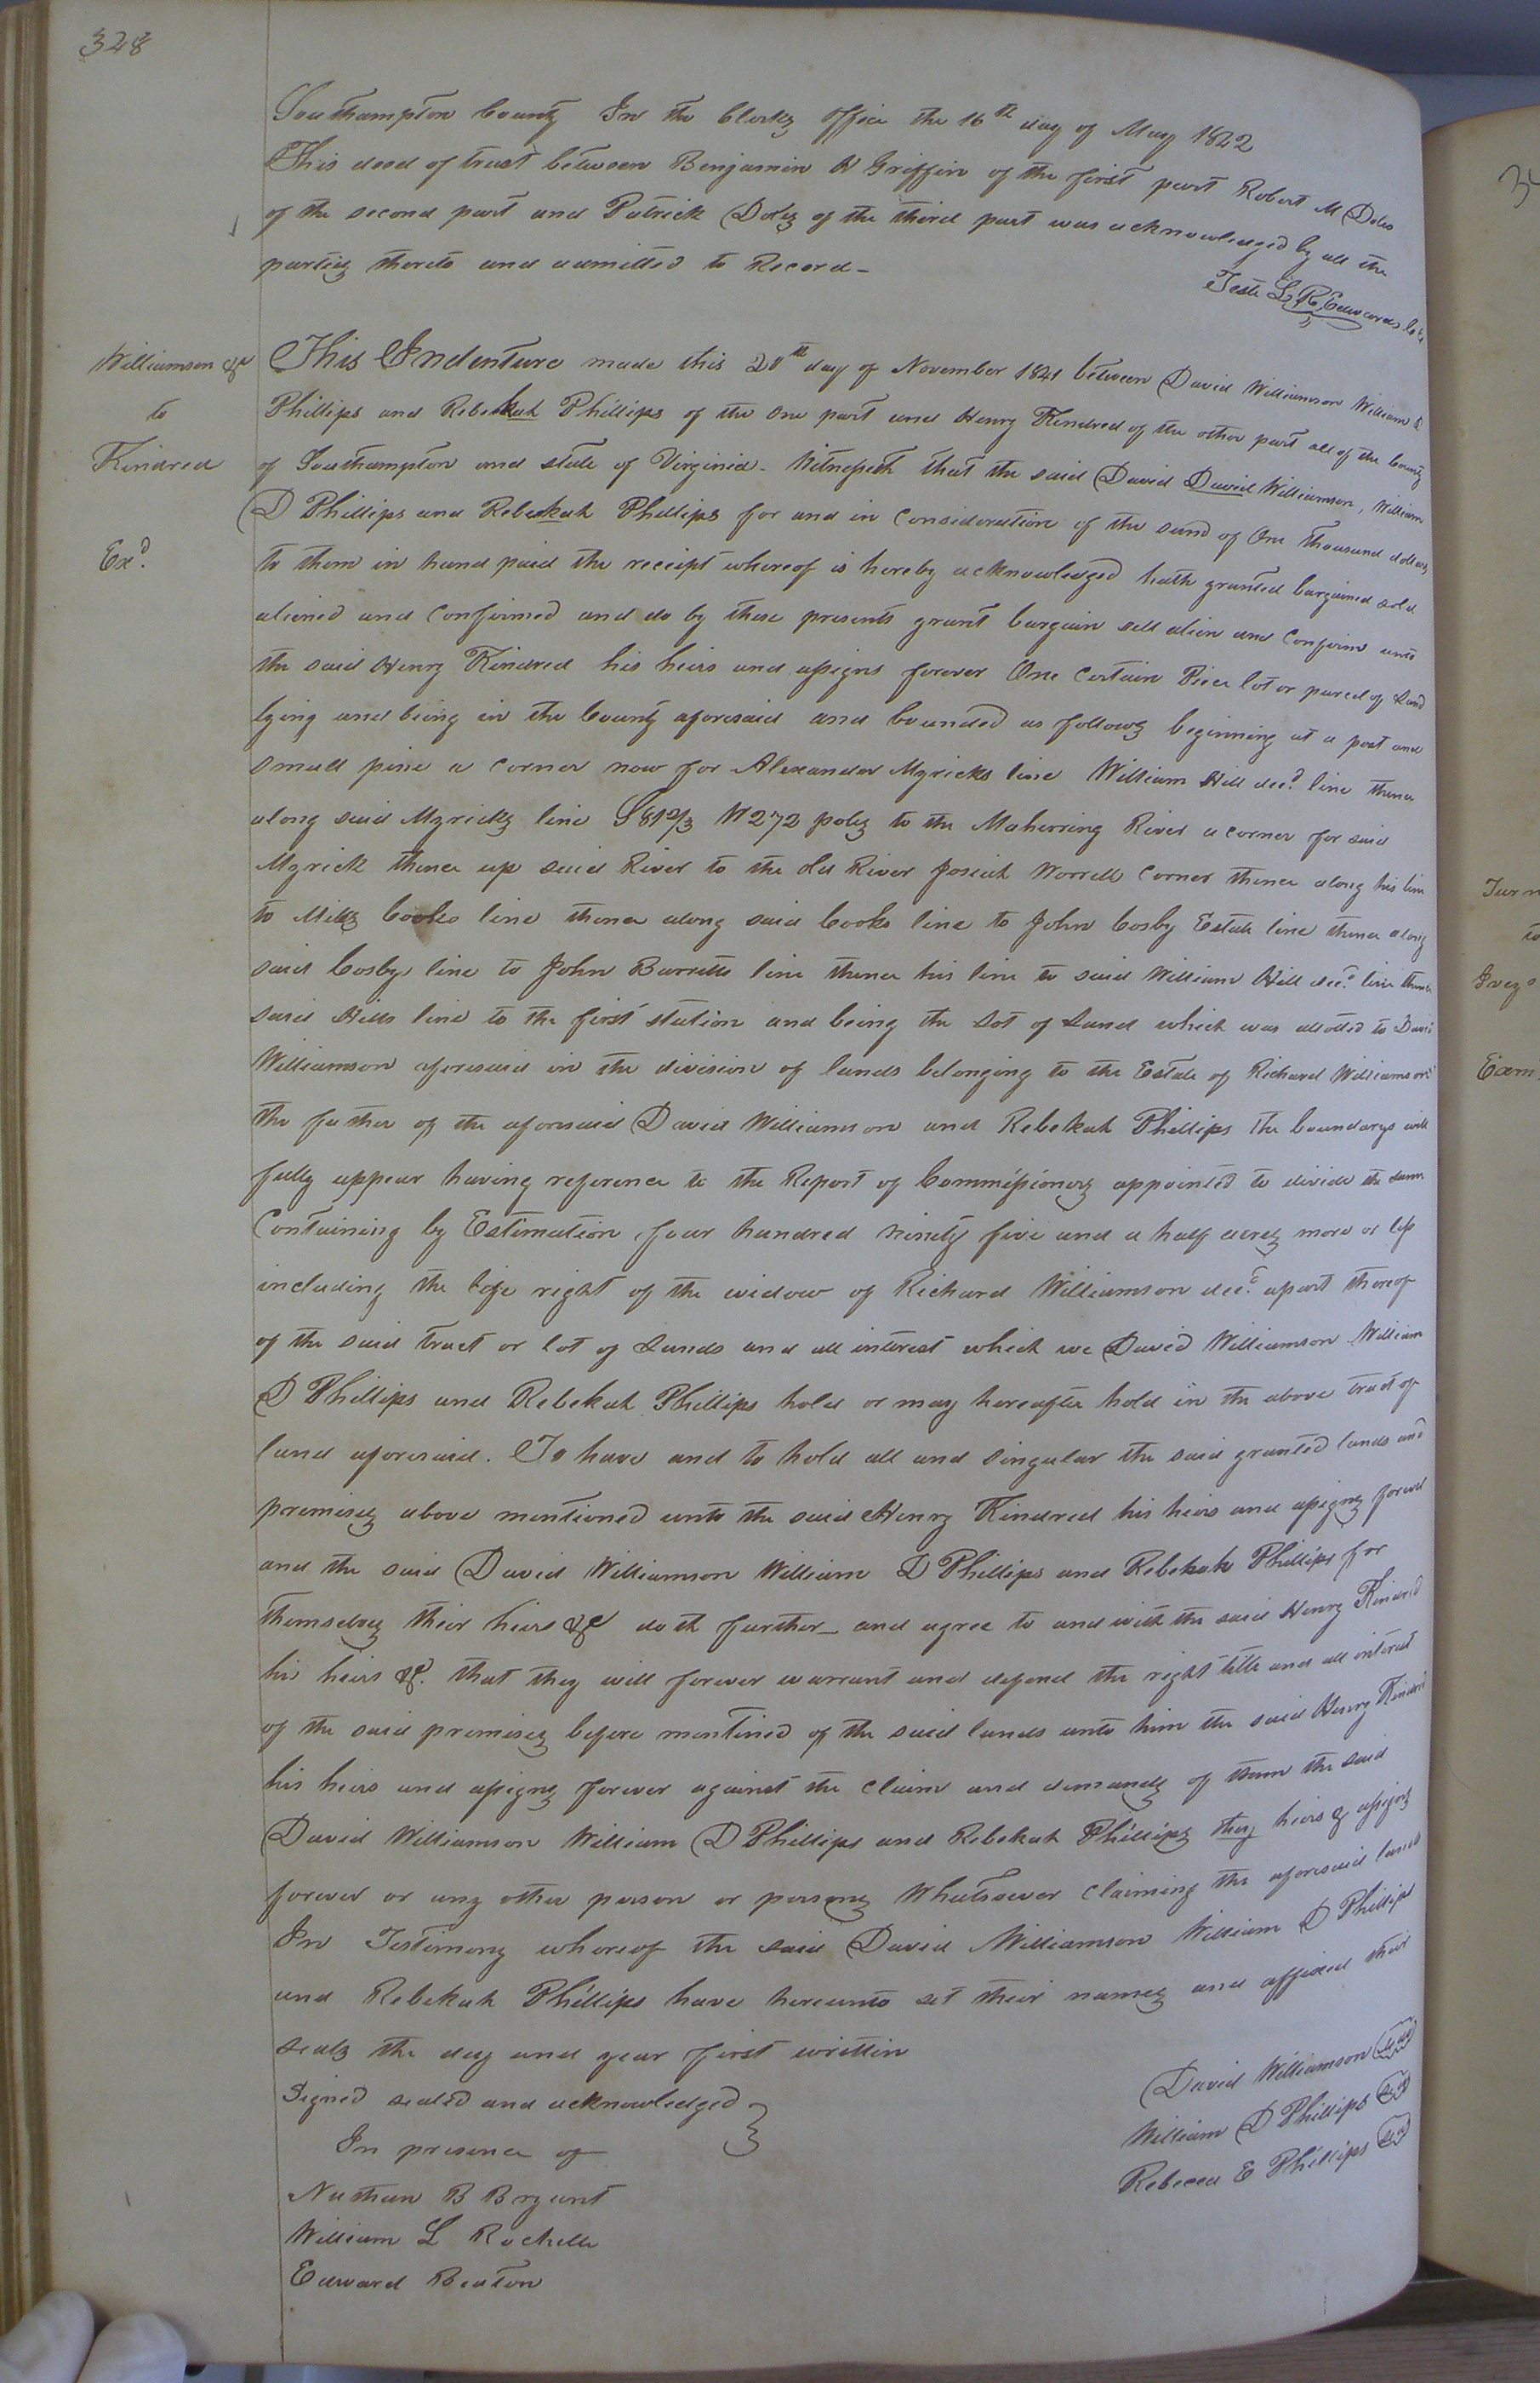 328
Southampton County In the Clerks office the 16th day of May 1842
This deed of trust between Benjamin W Griffin of the first part Robert M Doles
of the second part and Patrick Doles of the third part was acknowledged by all the
parties thereto and admitted to Record-
Teste L. R. Edwards
Williamson &c
to
Kindred
Exd.
This Indenture made this 20th day of November 1841 between David Williamson William D
Phillips and Rebekah Phillips of the one part and Henry Kindred of the other part all of the County
of Southampton and state of Virginia- Witnesseth that the said David David Williamson, William
D Phillips and Rebeckah Phillips for and in Consideration of the sum of One thousand dollars
to them in hand paid the receipt whereof is hereby acknowledged hath granted bargained sold
aliened and Confirmed and do by these presents grant bargain sell alien and Confirm unto
the said Henry Kindred his heirs and assigns forever One Certain Piece lot or parcel of Land
lying and being in the County aforesaid and bounded as follows beginning at a post and
small pine a corner now for Alexander Myricks line William Hill decd. line thence
along said Myricks line S 81 2/3 W 272 poles to the Maherring River a corner for said
Myrick thence up said River to the old River Josiah Worrell Corner thence along his line
to Mills Cooks line thence along said Cooks line to John Cosby Estate line thence along
said Cosbys line to John Barretts line thence his line to said William Hill decd. line thence
said Hills line to the first station and being the Lot of Land which was allotted to David
Williamson aforesaid in the division of lands belonging to the Estate of Richard Williamson
the father of the aforesaid David Williamson and Rebekah Phillips the boundarys will
fully appear having reference to the Report of Commissioners appointed to divide the same
Containing by Estimation four hundred ninety five and a half acres more or less
including the life right of the widow of Richard Williamson decd. apart thereof
of the said tract or lot of Lands and all interest which we David Williamson William
D Phillips and Rebekah Phillips hold or may hereafter hold in the above tract of
land aforesaid. To have and to hold all and singular the said granted lands and
premises above mentioned unto the said Henry Kindred his heirs and assigns forever
and the said David Williamson William D Phillips and Rebekah Phillips for
themselves their heirs &c doth further- and agree to and with the said Henry Kindred
his heirs &c. that they will forever warrant and defend the right title and all interest
of the said premises before mentined of the said lands unto him the said Henry Kindred
his heirs and assigns forever against the claim and demands of them the said
David Williamson William D Phillips and Rebekah Phillips they heirs & assigns
forever or any other person or persons Whatsoever Claiming the aforesaid lands
In Testimony whereof the said David Williamson William D Phillips
and Rebekah Phillips have hereunto set their names and affixed their
seals the day and year first writtin
Signed sealed and acknowledged
In presence of
David Williamson Seal
William D Phillips Seal
Rebecca E Phillips Seal
Nathan B Bryant
William L Rochelle
Edward Beaton
Turn
to
Exam